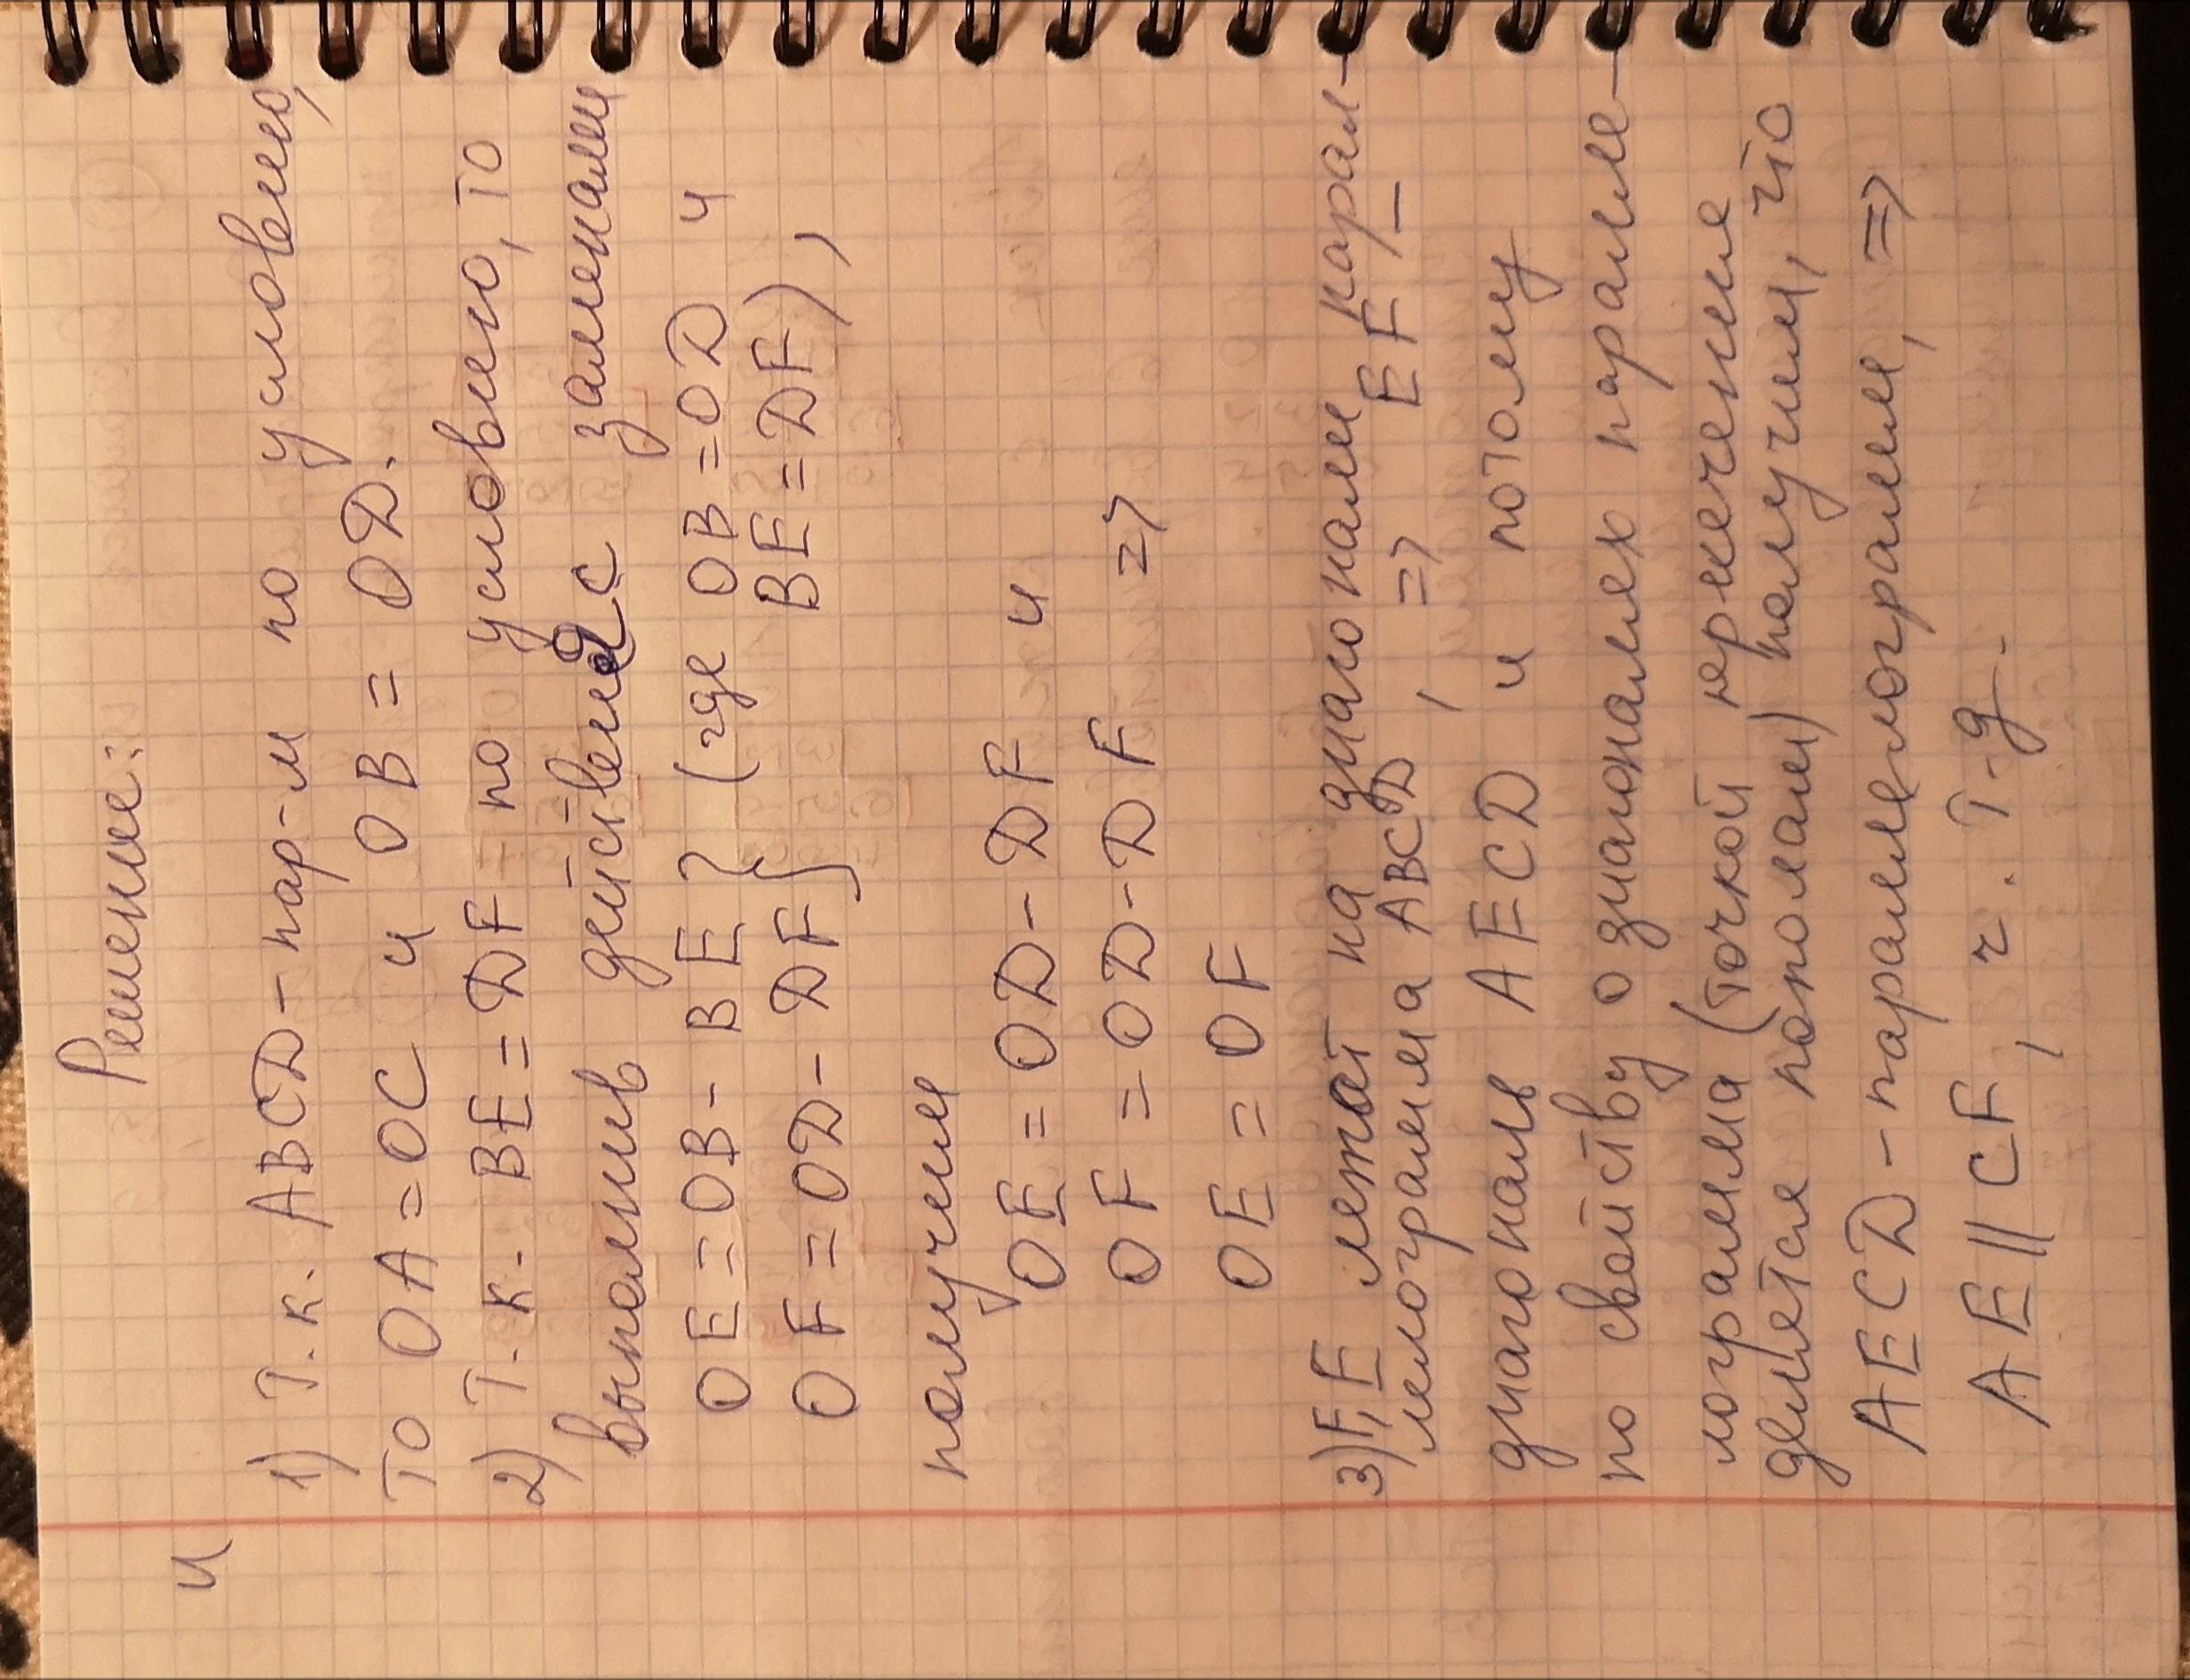 Решение:
и
1) Т.к. ABCD - пар-м по условию,
то OA = OC и OB = OD.
2) Т.к. BE = DF по условию, то
выполнив действие с заменами
OE = OB - BE } (где OB = OD и
OF = OD - DF } BE = DF),
получим
OE = OD - DF и
OF = OD - DF =>
OE = OF
3) F, E лежат на диагонали парал-
лелограмма ABCD, => EF -
диагональ AECD и потому
по свойству о диагоналях паралле-
лограмма (точкой пересечения
делится пополам) получим, что
AECD - параллелограмм, =>
AE || CF, ч. т-д.